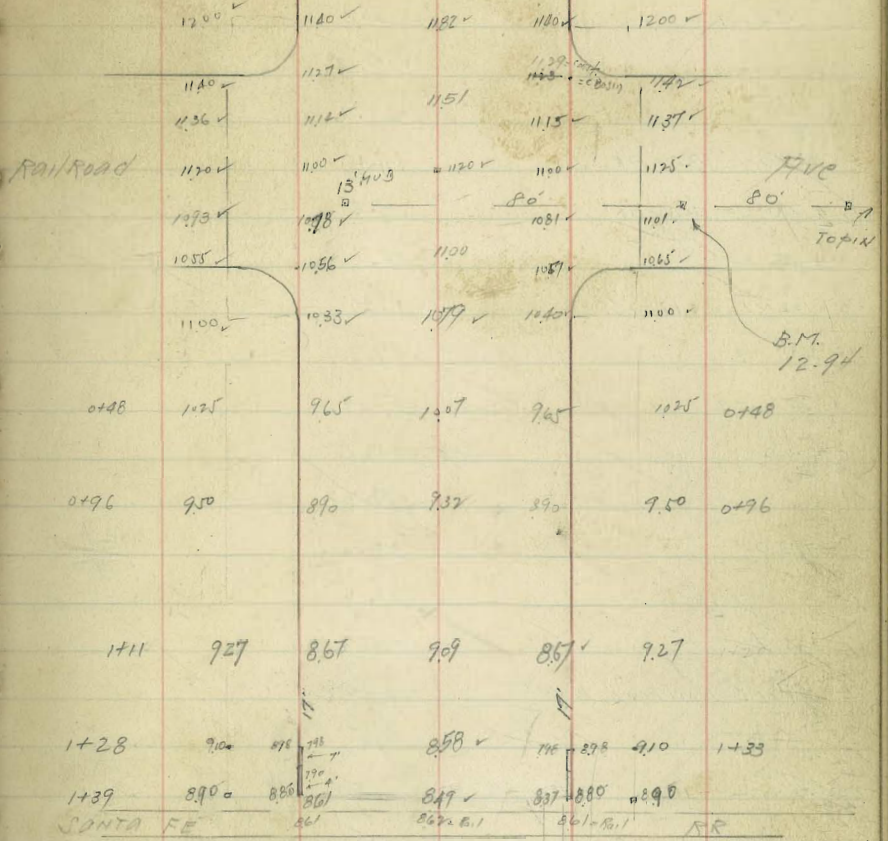 1200 ✓ 1140 ✓ 1182 ✓ 1140 ✓ 1200 ✓
1140 ✓ 1127 ✓ 1142 ✓
1151
1136 ✓ 1114 ✓ 1115 ✓ 1137 ✓
RailRoad 1120 ✓ 1100 ✓ 1120 ✓ 1100 ✓ 1125 Ave
13' HUB 80' 80'
1093 ✓ 1081 ✓ 1101 ✓ TO PIN
1055 ✓ 1056 ✓ 1100 1057 ✓ 1065 ✓
1100 ✓ 1033 ✓ 1079 ✓ 1040 ✓ 1100 ✓
B.M.
12.94
0+48 1025 965 1007 965 1025 0+48
0+96 9.50 890 9.32 890 9.50 0+96
1+11 927 8.67 9.09 8.67 ✓ 9.27
17' 17'
1+28 9.10 898 798 8.58 ✓ 798 898 9.10 1+33
7'
790
4'
1+39 8.90 8.80 861 849 ✓ 837 8.80 8.90
SANTA FE 861 862=Rail 861=Rail RR